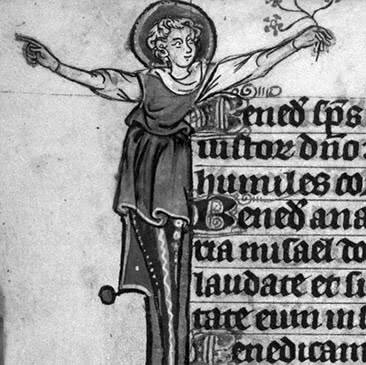 Bened̄ sp̄s
iustor dn̄o
humiles co
Bened̄ ana
ria misael do
laudate et su
tate eum in s
Benedicam